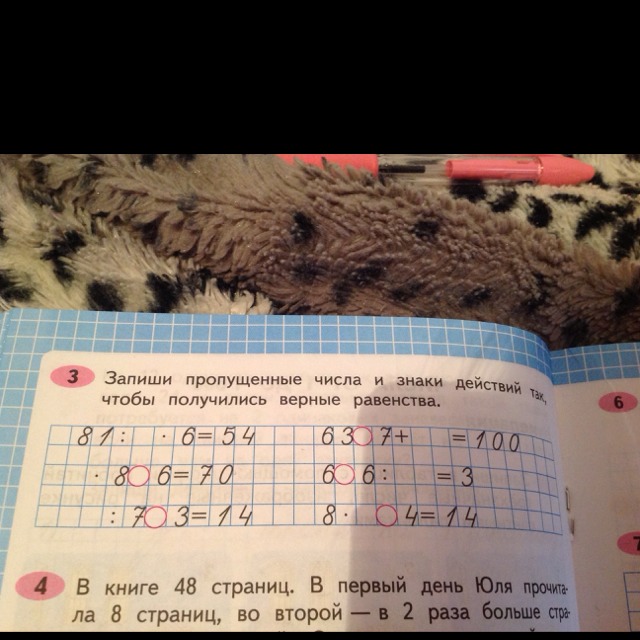 3 Запиши пропущенные числа и знаки действий так,
чтобы получились верные равенства.
81: · 6=54 63○7+ =100
· 8○6=70 6○6: =3
: 7○3=14 8· ○4=14
6
7
4 В книге 48 страниц. В первый день Юля прочита-
ла 8 страниц, во второй — в 2 раза больше стра-